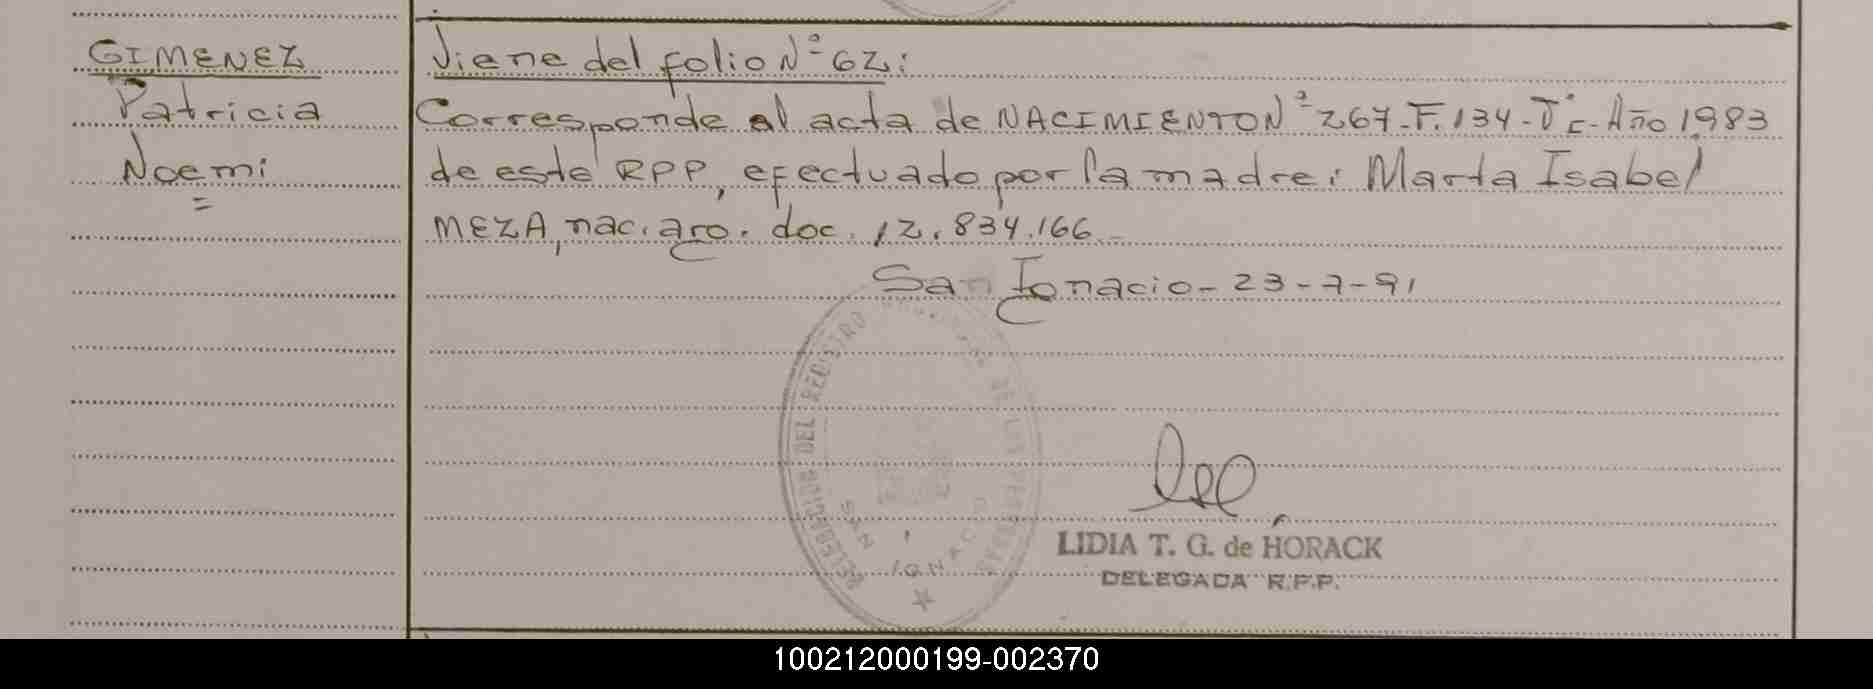 GIMENEZ
Patricia
Noemi
Viene del folio Nº 62:
Corresponde al acta de NACIMIENTO Nº 267-F.134-Tº I-Año 1983
de este RPP, efectuado por la madre: Marta Isabel
MEZA, nac. arg. doc. 12.834.166
San Ignacio-23-7-91
DELEGACION DEL REGISTRO DE LAS PERSONAS
SAN IGNACIO
LIDIA T. G. de HORACK
DELEGADA R.P.P.
100212000199-002370